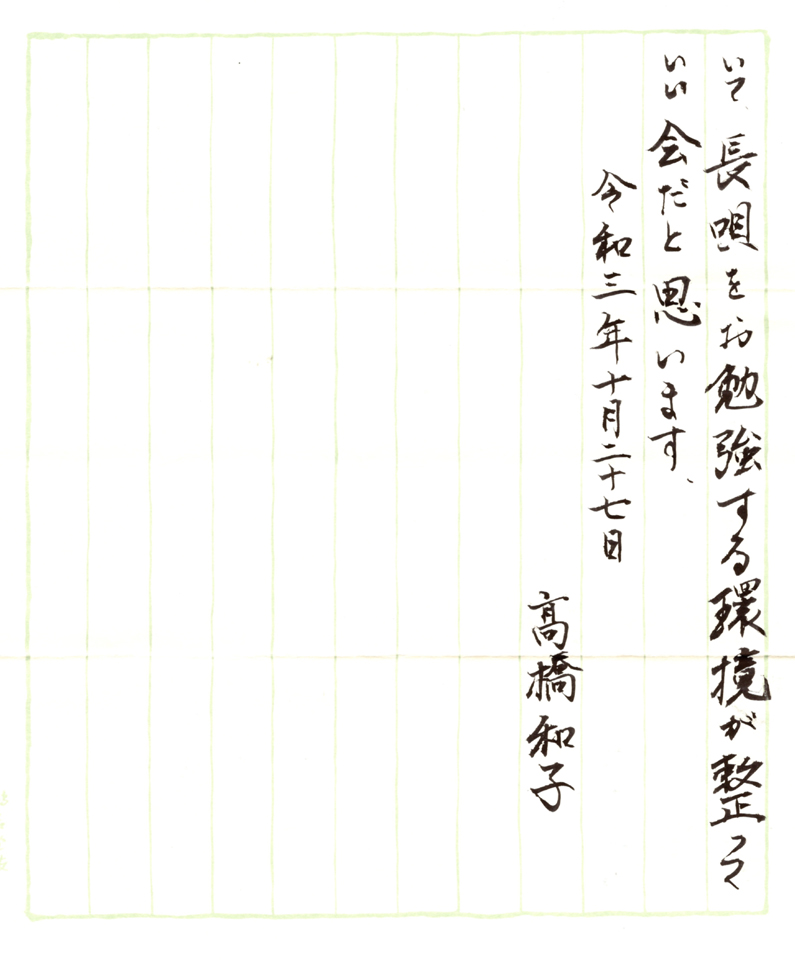 いて、長唄をお勉強する環境が整って
いい会だと思います、
令和三年十月二十七日
高橋和子